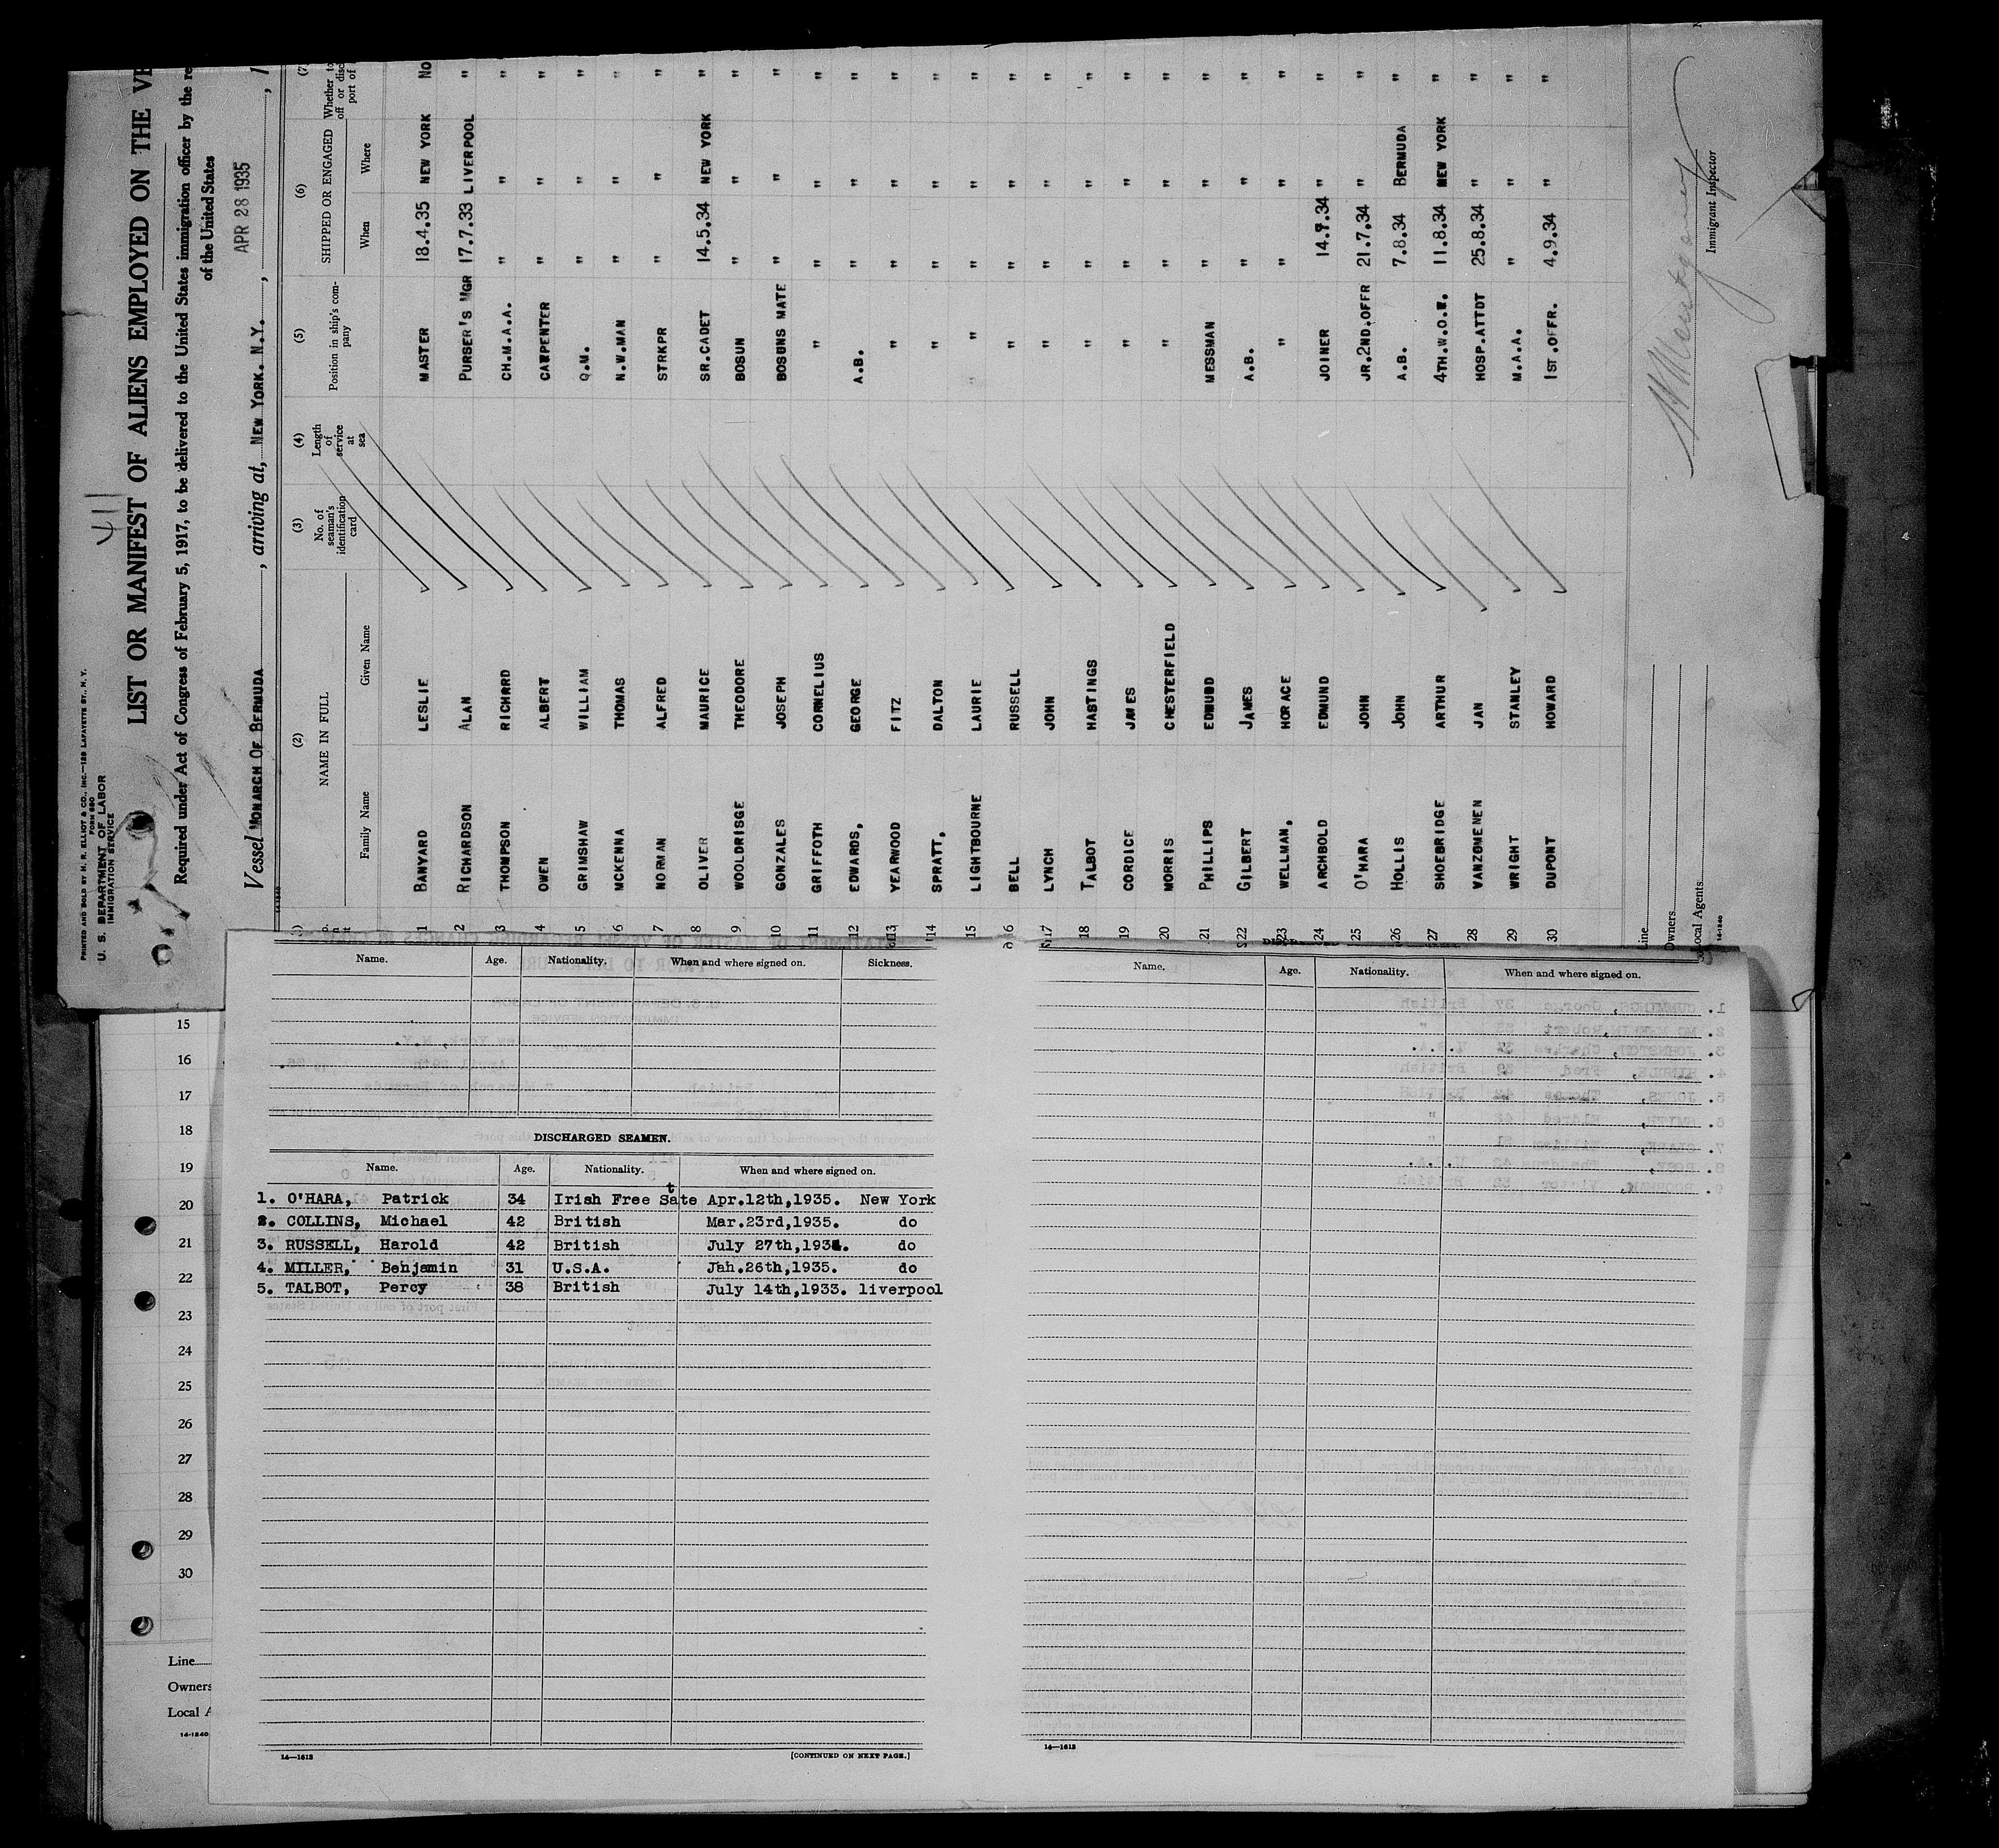 PRINTED AND SOLD BY M. R. ELLIOT & CO., INC.—129 LAFAYETTE ST., N. Y.
FORM 680
U. S. DEPARTMENT OF LABOR
IMMIGRATION SERVICE
411
LIST OR MANIFEST OF ALIENS EMPLOYED ON THE VE
Required under Act of Congress of February 5, 1917, to be delivered to the United States immigration officer by the re
of the United States
Vessel MONARCH OF BERMUDA, arriving at, NEW YORK. N.Y., APR 28 1935, 1
14-1240
(2) (3) (4) (5) (6) (7)
NAME IN FULL No. of seaman's identification card Length of service at sea Position in ship's company SHIPPED OR ENGAGED Whether to
off or disc
port of
Family Name Given Name When Where
1 BANYARD LESLIE MASTER 18.4.35 NEW YORK NO
2 RICHARDSON ALAN PURSER'S MGR 17.7.33 LIVERPOOL "
3 THOMPSON RICHARD CH.M.A.A. " " "
4 OWEN ALBERT CARPENTER " " "
5 GRIMSHAW WILLIAM Q.M. " " "
6 MCKENNA THOMAS N.W.MAN " " "
7 NORMAN ALFRED STRKPR " " "
8 OLIVER MAURICE SR.CADET 14.5.34 NEW YORK "
9 WOOLDRISGE THEODORE BOSUN " " "
10 GONZALES JOSEPH BOSUNS MATE " " "
11 GRIFFOTH CORNELIUS " " " "
12 EDWARDS, GEORGE A.B. " " "
13 YEARWOOD FITZ " " " "
14 SPRATT, DALTON " " " "
15 LIGHTBOURNE LAURIE " " " "
16 BELL RUSSELL " " " "
17 LYNCH JOHN " " " "
18 TALBOT HASTINGS " " " "
19 CORDICE JAMES " " " "
20 MORRIS CHESTERFIELD " " " "
21 PHILLIPS EDMUDD MESSMAN " " "
22 GILBERT JAMES A.B. " " "
23 WELLMAN, HORACE " " " "
24 ARCHBOLD EDMUND JOINER 14.7.34 " "
25 O'HARA JOHN JR.2ND.OFFR 21.7.34 " "
26 HOLLIS JOHN A.B. 7.8.34 BERMUDA "
27 SHOEBRIDGE ARTHUR 4TH.W.O. 11.8.34 NEW YORK "
28 VANZOMENEN JAN HOSP.ATTDT 25.8.34 " "
29 WRIGHT STANLEY M.A.A. " " "
30 DUPONT HOWARD 1ST.OFFR. 4.9.34 " "
Line
Owners
Local Agents
14-1240
Immigrant Inspector
15
16
17
18
19
20
21
22
23
24
25
26
27
28
29
30
Line
Owners
Local A
14-1240
Name. Age. Nationality. When and where signed on. Sickness.
DISCHARGED SEAMEN.
Name. Age. Nationality. When and where signed on.
1. O'HARA, Patrick 34 Irish Free Sate Apr.12th,1935. New York
t
2. COLLINS, Michael 42 British Mar.23rd,1935. do
3. RUSSELL, Harold 42 British July 27th,1934. do
4. MILLER, Benjamin 31 U.S.A. Jan.26th,1935. do
5. TALBOT, Percy 38 British July 14th,1933. liverpool
14—1613
[CONTINUED ON NEXT PAGE.]
Name. Age. Nationality. When and where signed on.
14—1613